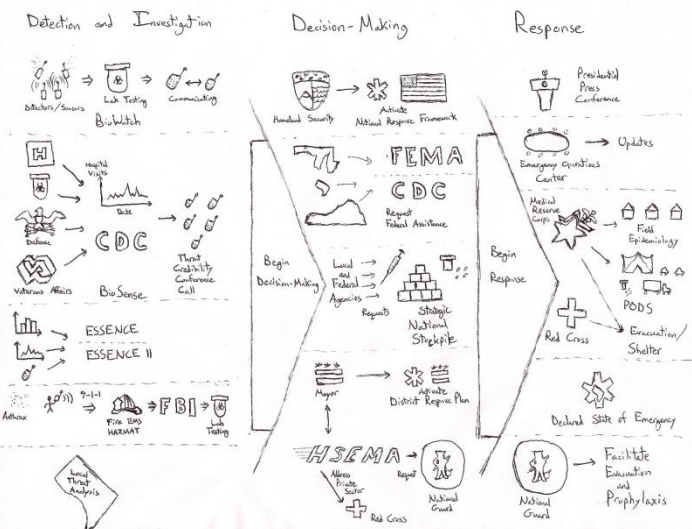 Detection and Investigation
Detectors/Sensors
Lab Testing
Communicating
BioWatch
H
Hospital
Visits
Date
Defense
CDC
Veterans Affairs
BioSense
Threat
Credibility
Conference
Call
ESSENCE
ESSENCE II
Anthrax
9-1-1
Fire EMS
HAZMAT
FBI
Lab
Testing
Local
Threat
Analysis
Begin
Decision-Making
Decision-Making
Homeland Security
Activate
National Response Framework
FEMA
CDC
Request
Federal Assistance
Local
and
Federal
Agencies
Requests
Strategic
National
Stockpile
Mayor
Activate
District Response Plan
HSEMA
Address
Private
Sector
Request
National
Guard
Red Cross
Begin
Response
Response
Presidential
Press
Conference
Emergency Operations
Center
Updates
Medical
Reserve
Corps
Field
Epidemiology
PODS
Red Cross
Evacuation/
Shelter
Declared State of Emergency
National
Guard
Facilitate
Evacuation
and
Prophylaxis